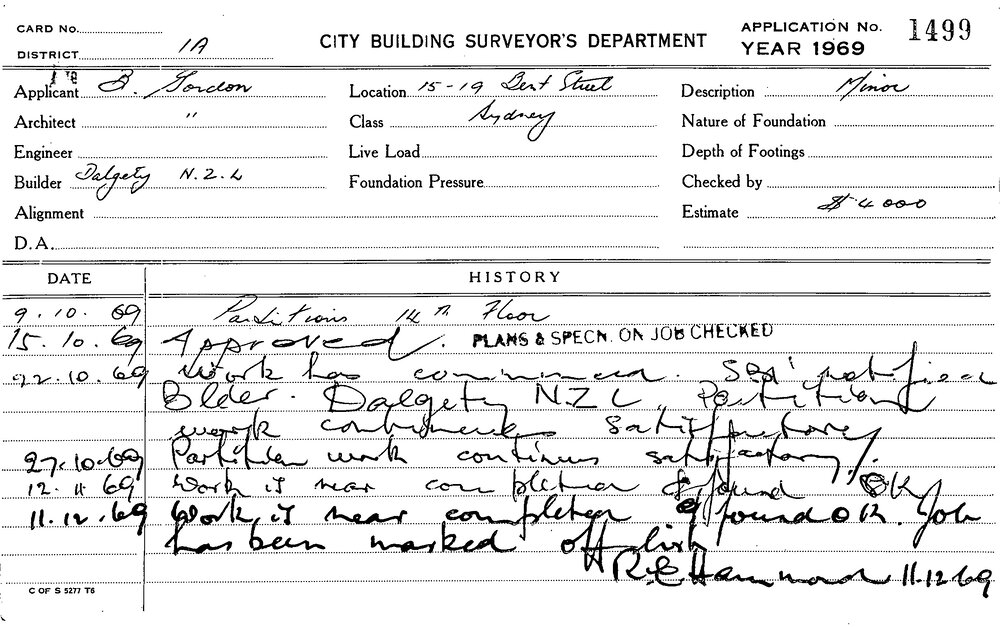 CARD No.
DISTRICT 1A
CITY BUILDING SURVEYOR'S DEPARTMENT
APPLICATION No. 1499
YEAR 1969
Applicant B. Gordon
Location 15-19 Bent Street
Description Minor
Architect "
Class Sydney
Nature of Foundation
Engineer
Live Load
Depth of Footings
Builder Dalgety N.Z.L
Foundation Pressure
Checked by
Alignment
Estimate $4000
D.A.
DATE HISTORY
9.10.69 Partitions 14th Floor
15.10.69 Approved. PLANS & SPECN. ON JOB CHECKED
22.10.69 Work has commenced. notified
Blder. Dalgety N.Z L. Partition
work satisfactory
27.10.69 Partition work continues satisfactory.
12.11.69 Work is near completion & found OK
11.12.69 Work is near completion & found OK. Job
has been marked off list
R.E Hammond 11.12.69
C OF S 5277 T6